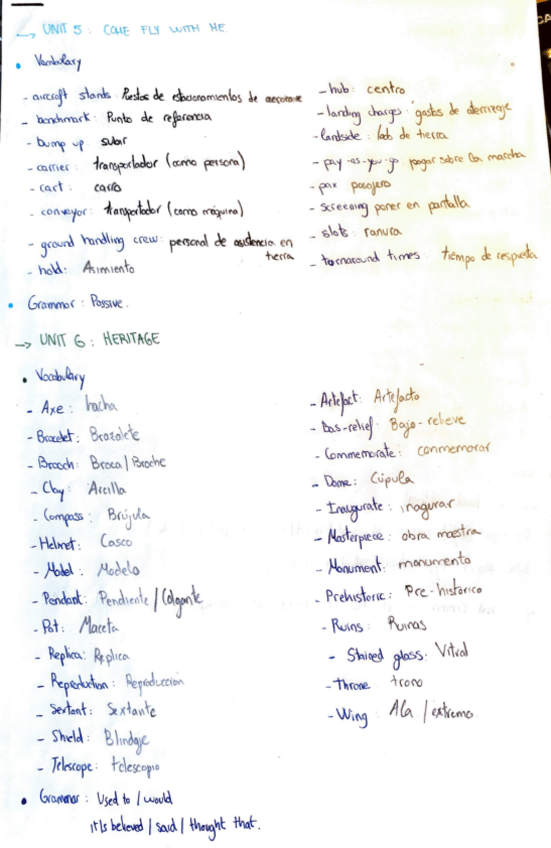 → UNIT 5: COME FLY WITH ME.
• Vocabulary
- aircraft stands: Puestos de estacionamientos de aeronave
- benchmark: Punto de referencia
- bump up: subir
- carrier: transportador (como persona)
- cart: carro
- conveyor: transportador (como máquina)
- ground handling crew: personal de asistencia en tierra
- hold: Asimiento
- hub: centro
- landing charges: gastos de aterrizaje
- landside: lado de tierra
- pay-as-you-go pagar sobre la marcha
- pax pasajero
- screening poner en pantalla
- slots: ranura
- turnaround times: tiempo de respuesta
• Grammar: Passive.
→ UNIT 6: HERITAGE
• Vocabulary
- Axe: hacha
- Bracelet: Brazalete
- Brooch: Broca / Broche
- Clay: Arcilla
- Compass: Brújula
- Helmet: Casco
- Model: Modelo
- Pendant: Pendiente / Colgante
- Pot: Maceta
- Replica: Replica
- Reproduction: Reproducción
- Sextant: Sextante
- Shield: Blindaje
- Telescope: telescopio
- Artefact: Artefacto
- Bas-relief: Bajo-relieve
- Commemorate: conmemorar
- Dome: Cúpula
- Inaugurate: inagurar
- Masterpiece: obra maestra
- Monument: monumento
- Prehistoric: Pre-histórico
- Ruins: Ruinas
- Stained glass: Vitral
- Throne trono
- Wing: Ala / extremo
• Grammar: Used to / would
it is believed / said / thought that.